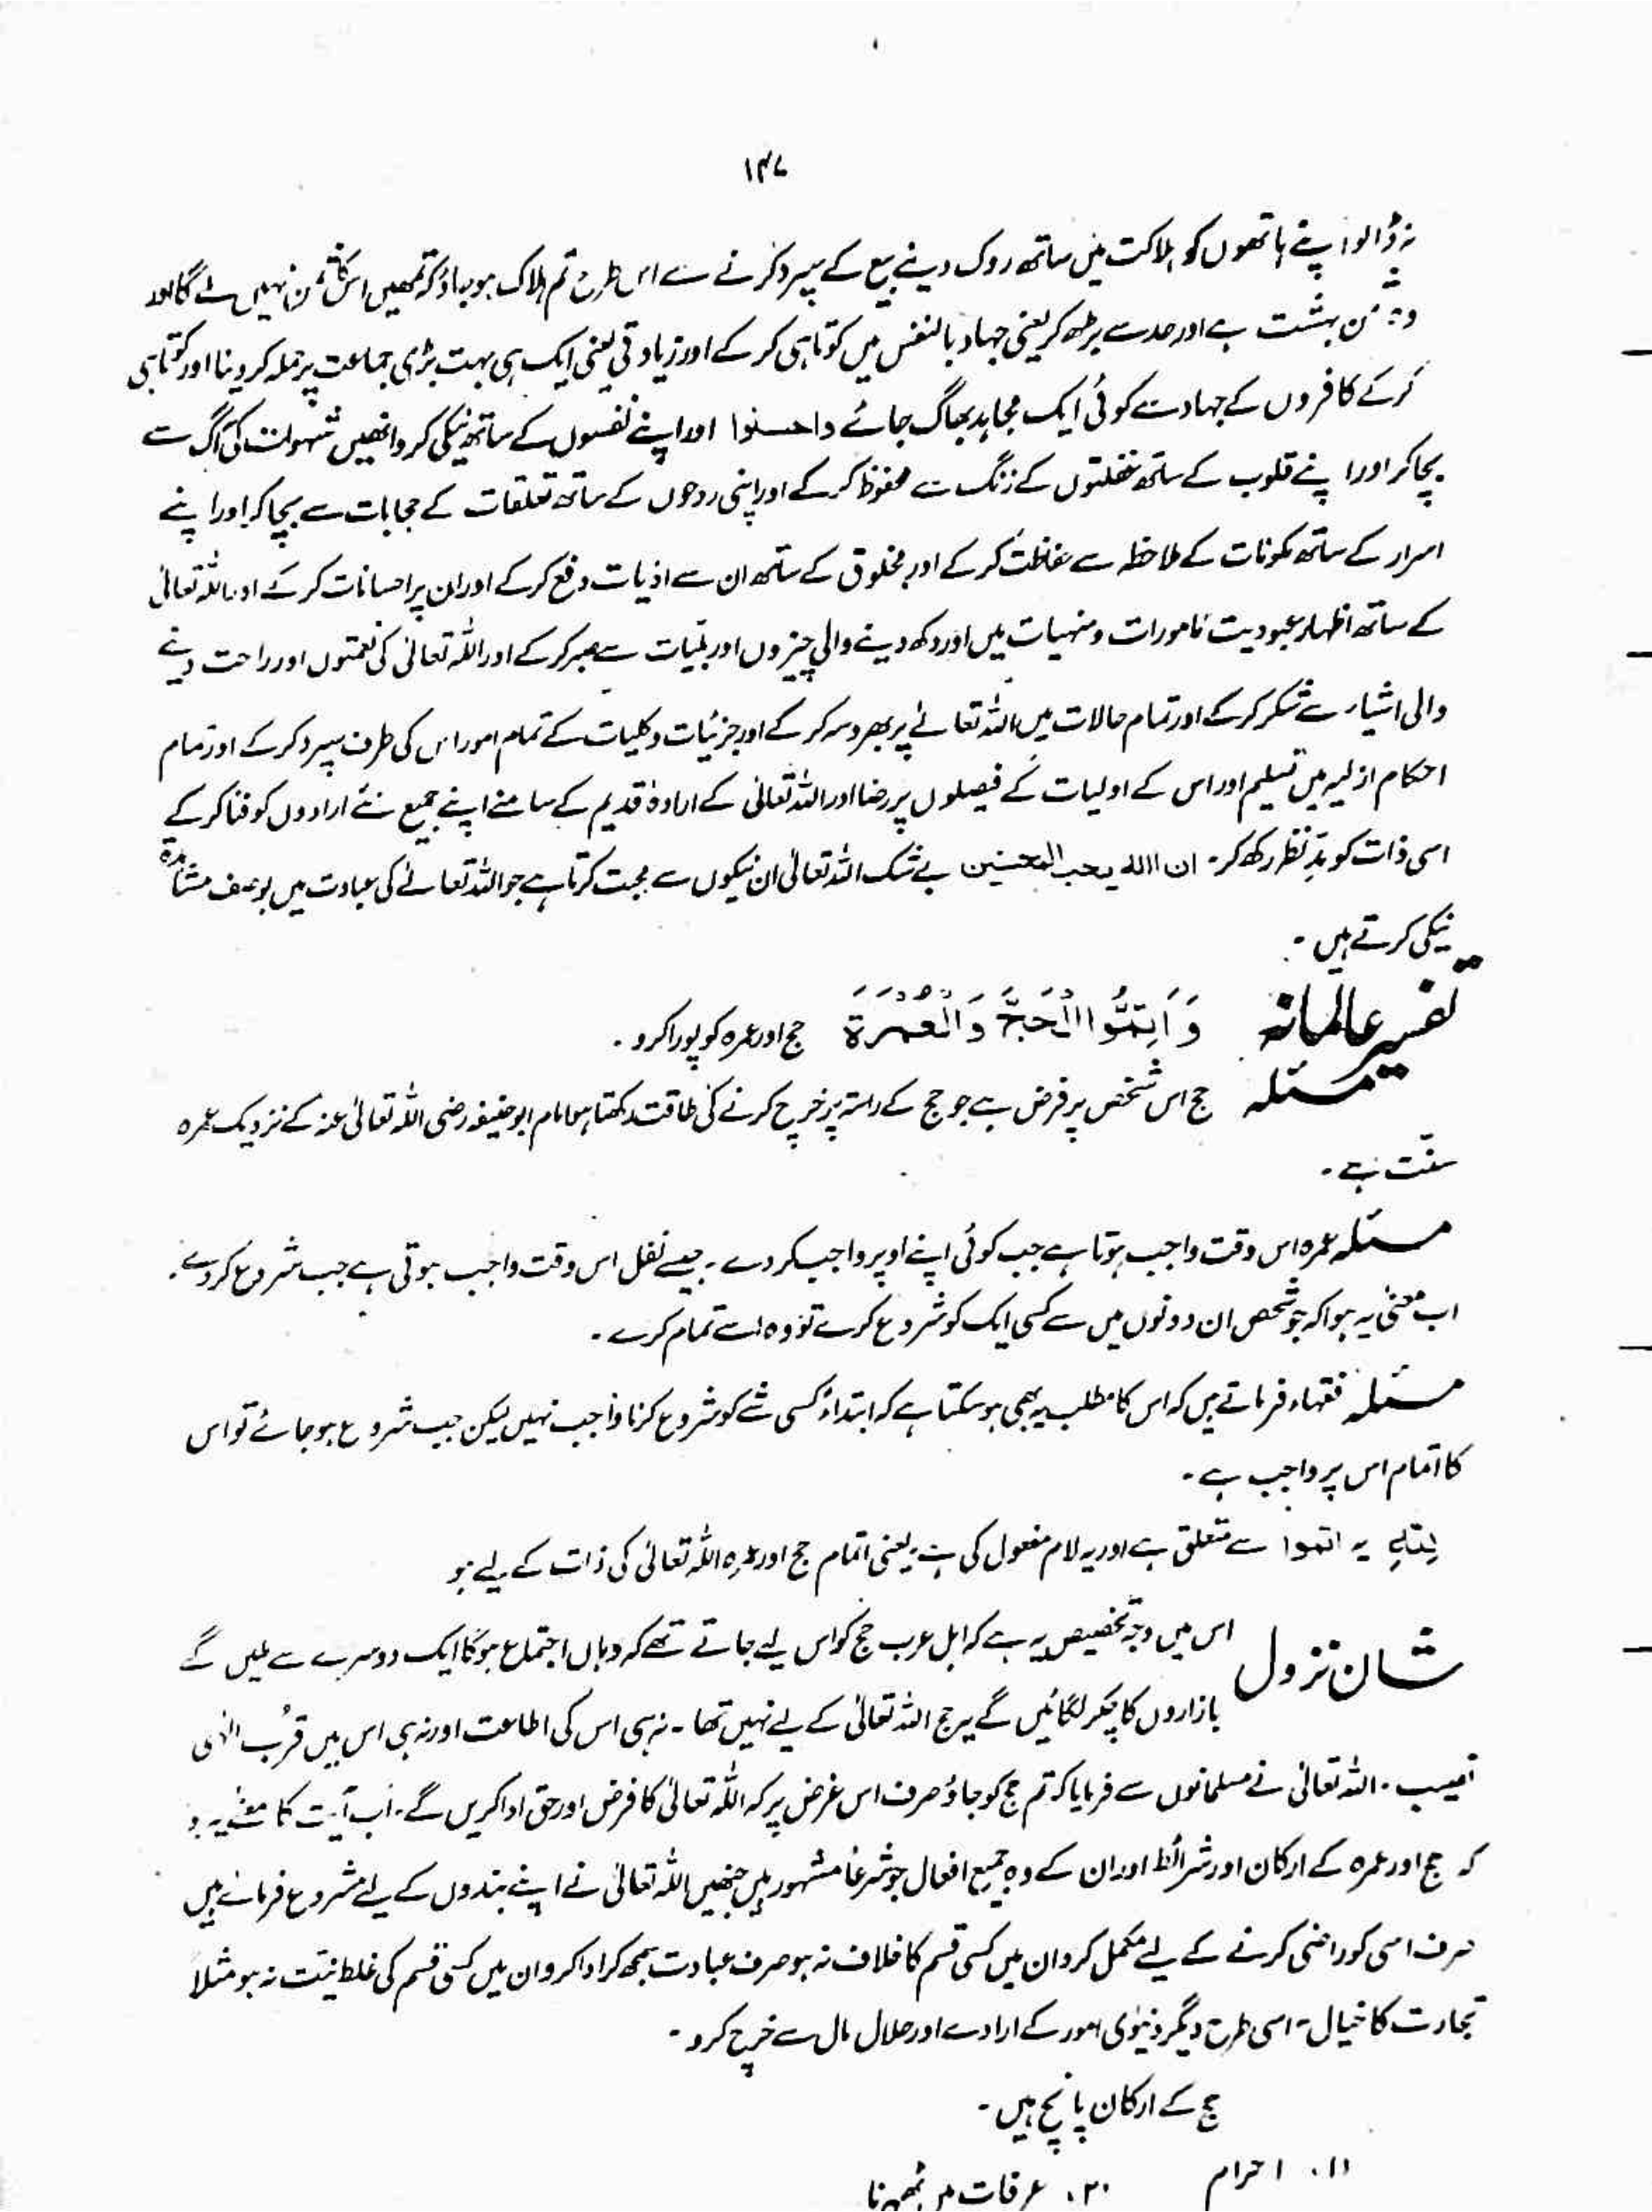 ۱۴۷
نہ ڈالو اپنے ہاتھوں کو ہلاکت میں ساتھ روک دینے بیع کے سپرد کرنے سے اس طرح تم ہلاک ہو جاؤ کہ تمھیں اس کا ثمن نہیں ملے گا اور
وہ ثمن بہشت ہے اور حد سے بڑھ کر یعنی جہاد بالنفس میں کوتاہی کر کے اور زیادتی یعنی ایک ہی بہت بڑی جماعت پر حملہ کر دینا اور کوتاہی
کر کے کافروں کے جہاد سے کوئی ایک مجاہد بھاگ جائے واحسنوا اور اپنے نفسوں کے ساتھ نیکی کرو انھیں شہوات کی آگ سے
بچا کر اور اپنے قلوب کے ساتھ غفلتوں کے زنگ سے محفوظ کر کے اور اپنی روحوں کے ساتھ تعلقات کے حجابات سے بچا کر اور اپنے
اسرار کے ساتھ مکونات کے ملاحظہ سے حفاظت کر کے اور مخلوق کے ساتھ ان سے اذیات دفع کر کے اور ان پر احسانات کر کے اور اللہ تعالیٰ
کے ساتھ اظہار عبودیت مامورات و منہیات میں اور دکھ دینے والی چیزوں اور بلیات سے صبر کر کے اور اللہ تعالیٰ کی نعمتوں اور راحت دینے
والی اشیاء سے شکر کر کے اور تمام حالات میں اللہ تعالےٰ پر بھروسہ کر کے اور جزئیات و کلیات کے تمام امور اس کی طرف سپرد کر کے اور تمام
احکام ازلیہ میں تسلیم اور اس کے اولیات کے فیصلوں پر رضا اور اللہ تعالیٰ کے ارادۂ قدیم کے سامنے اپنے جمیع نئے ارادوں کو فنا کر کے
اسی ذات کو مدِ نظر رکھ کر۔ ان اللہ یحب المحسنین بے شک اللہ تعالیٰ ان نیکوں سے محبت کرتا ہے جو اللہ تعالےٰ کی عبادت میں بوصف مشاہدۃ
نیکی کرتے ہیں۔
تفسیر عالمانہ وَاَتِمُّوا الْحَجَّ وَالْعُمْرَةَ حج اور عمرہ کو پورا کرو۔
مسئلہ حج اس شخص پر فرض ہے جو حج کے راستہ پر خرچ کرنے کی طاقت رکھتا ہو امام ابو حنیفہ رضی اللہ تعالیٰ عنہ کے نزدیک عمرہ
سنّت ہے۔
مسئلہ عمرہ اس وقت واجب ہوتا ہے جب کوئی اپنے اوپر واجب کر دے۔ جیسے نفل اس وقت واجب ہوتی ہے جب شروع کر دے۔
اب معنٰی یہ ہوا کہ جو شخص ان دونوں میں سے کسی ایک کو شروع کرے تو وہ اسے تمام کرے۔
مسئلہ فقہاء فرماتے ہیں کہ اس کا مطلب یہ بھی ہو سکتا ہے کہ ابتداءً کسی شے کو شروع کرنا واجب نہیں لیکن جب شروع ہو جائے تو اس
کا اتمام اس پر واجب ہے۔
لِلّٰهِ یہ اتموا سے متعلق ہے اور یہ لام مفعول کی ہے۔ یعنی اتمام حج اور عمرہ اللہ تعالیٰ کی ذات کے لیے ہو
شان نزول اس میں وجہ تخصیص یہ ہے کہ اہل عرب حج کو اس لیے جاتے تھے کہ وہاں اجتماع ہوگا ایک دوسرے سے ملیں گے
بازاروں کا چکر لگائیں گے یہ حج اللہ تعالیٰ کے لیے نہیں تھا۔ نہ ہی اس کی اطاعت اور نہ ہی اس میں قُرب الٰہی
نصیب۔ اللہ تعالیٰ نے مسلمانوں سے فرمایا کہ تم حج کو جاؤ صرف اس غرض پر کہ اللہ تعالیٰ کا فرض اور حق ادا کریں گے۔ اب آیت کا معنٰے یہ ہو
کہ حج اور عمرہ کے ارکان اور شرائط اور ان کے وہ جمیع افعال جو شرعًا مشہور ہیں جنھیں اللہ تعالیٰ نے اپنے بندوں کے لیے مشروع فرمائے ہیں
صرف اسی کو راضی کرنے کے لیے مکمل کرو ان میں کسی قسم کا خلاف نہ ہو صرف عبادت سمجھ کر ادا کرو ان میں کسی قسم کی غلط نیت نہ ہو مثلاً
تجارت کا خیال۔ اسی طرح دیگر دنیوی امور کے ارادے اور حلال مال سے خرچ کرو۔
حج کے ارکان پانچ ہیں۔
۱۱۔ احرام ۲۰۔ عرفات میں ٹھہرنا